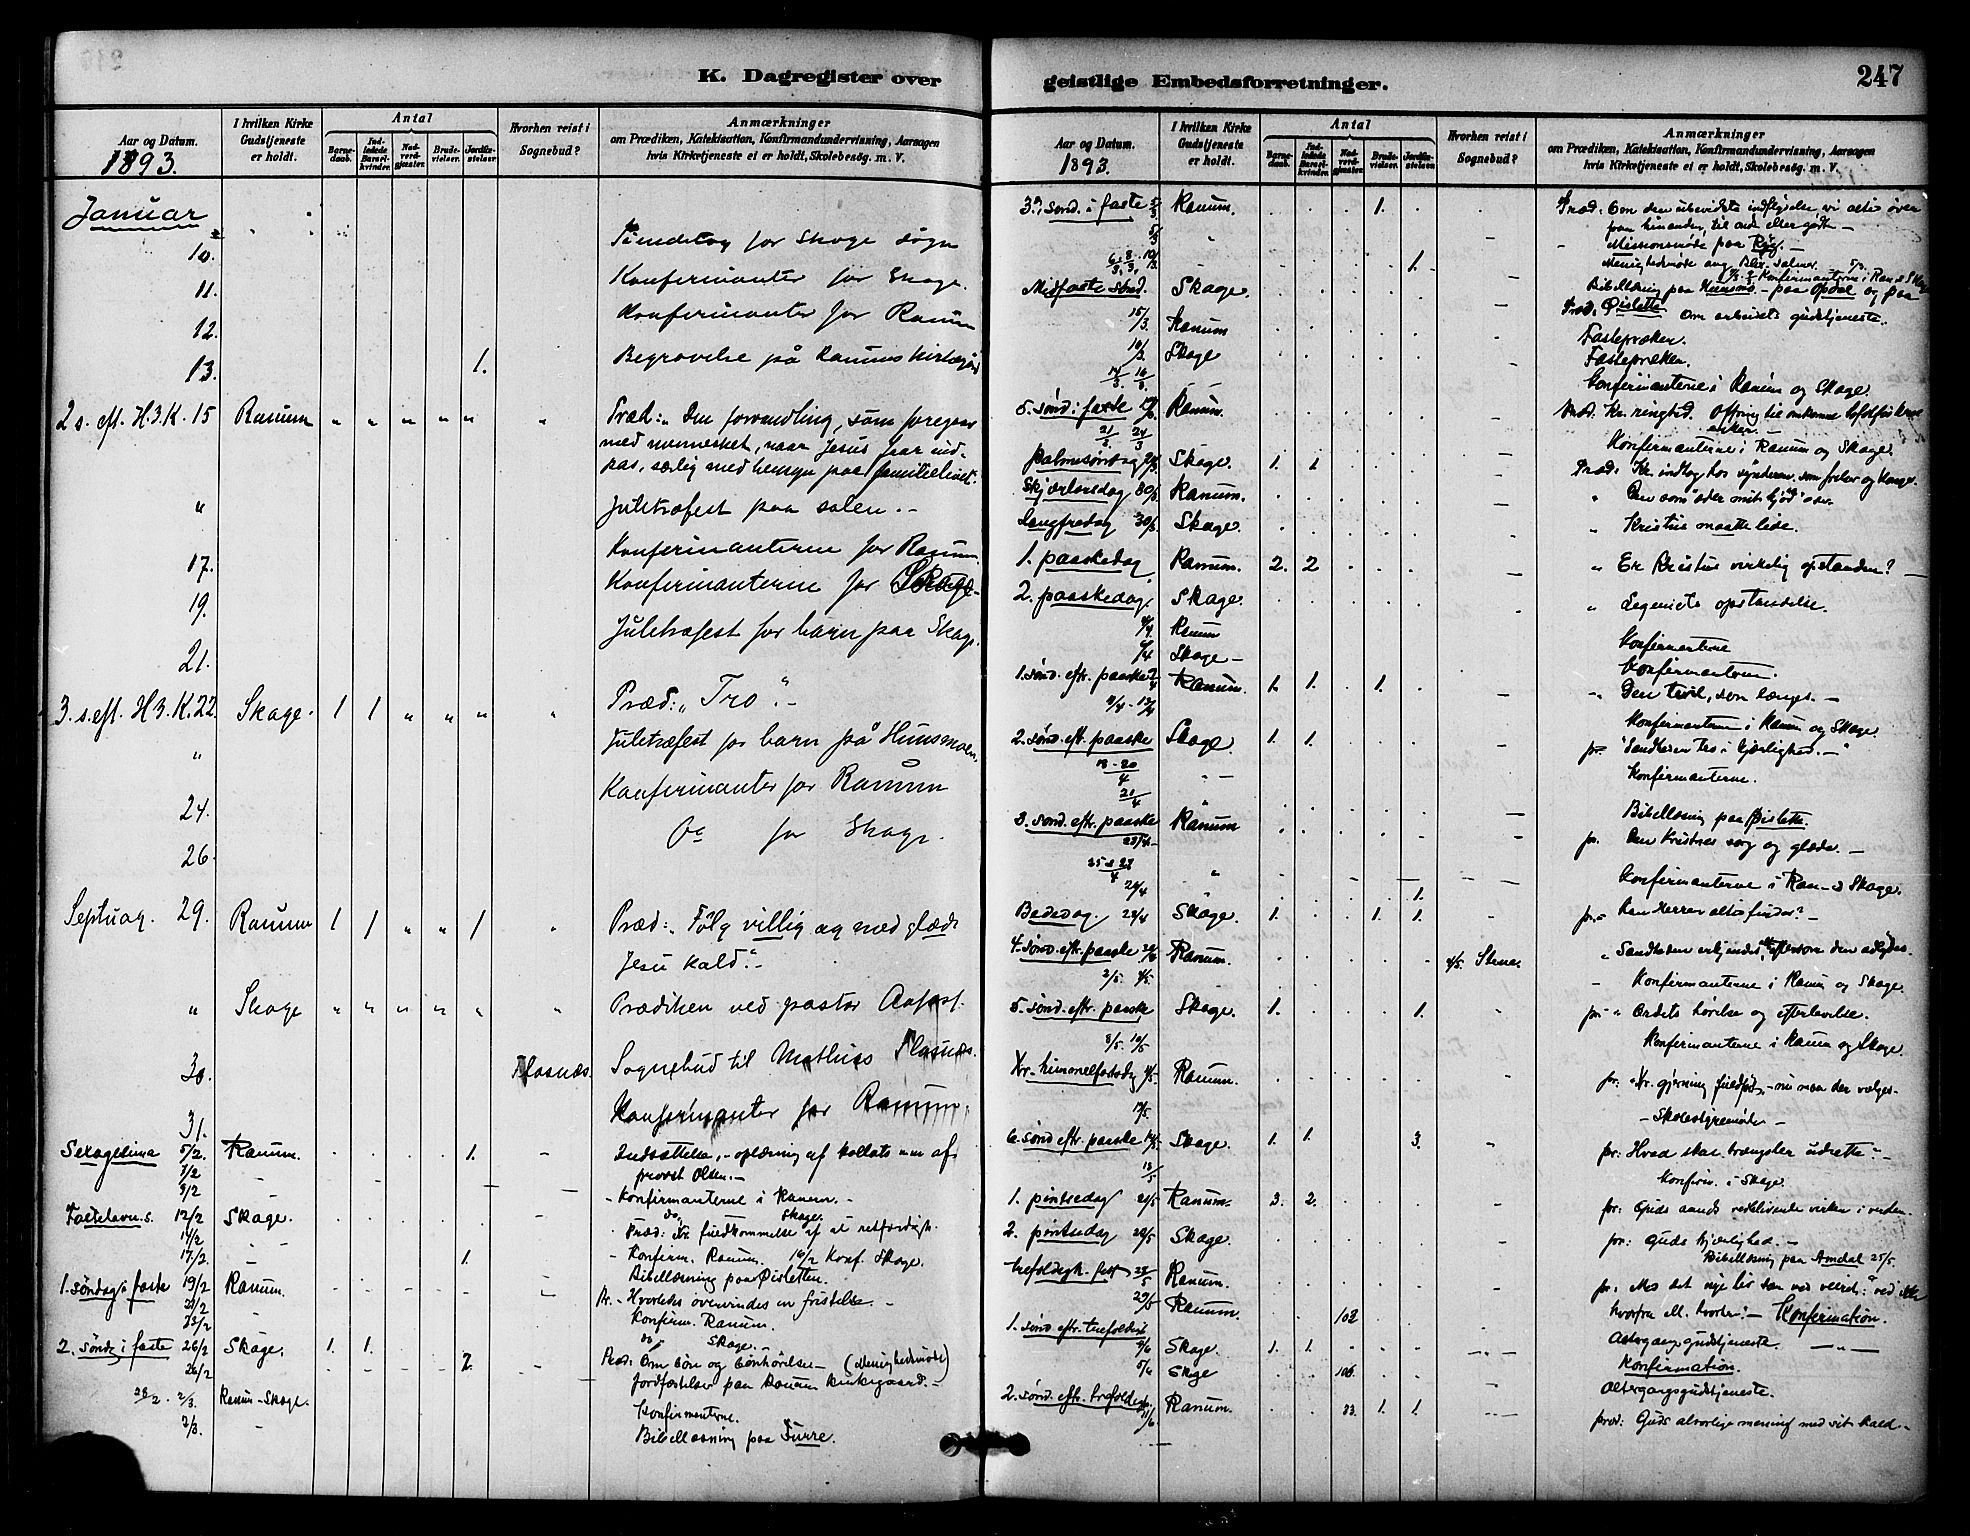 K. Dagregister over
Aar og Datum.
1893.
I hvilken Kirke Gudstjeneste er holdt.
Antal
Barnedaab.
Indledede Barselkvinder.
Nadverdgjester.
Brudevielser.
Jordfæstelser.
Hvorhen reist i Sognebud?
Anmærkninger
om Prædiken, Katekisation, Konfirmandundervisning, Aarsagen
hvis Kirketjeneste ei er holdt, Skolebesøg. m. V.
Januar
10. for Skage sogn
11. Konfirmanter for Skage.
12. Konfirmanter for Ranum
13. 1. Begravelse på Ranums kirkegård
2 s. eft. H.3.K. 15 Ranum " " " " " " Præd: „Den forvandling, som foregaar
med mennesket, naar Jesus faar ind-
pas, særlig med hensyn paa familielivet."
" Juletræfest paa salen. -
17. Konfirmanterne for Ranum
19. Konfirmanterne for Skage.
21. Juletræfest for barn paa Skage.
3. s. eft. H.3.K. 22. Skage. 1 1 " " " " Præd: „Tro". -
" Juletræfest for barn på Hunsmoen.
24. Konfirmanter for Ranum
26. Do for Skage.
Septuag. 29. Ranum 1 1 " " 1 " Præd: „Følg villig og med glæde
Jesu kald." -
" Skage " " " " " " Prædiken ved pastor
30. Flasnæs. Sognebud til Mathias Flasnæs.
31. Konfirmanter for Ranum.
Sexagesima 5/2. Ranum. 1. - Indsættelse, - oplæsning af kollats m.m af
provst Olsen. -
7/2
9/2 - Konfirmanterne i Ranum. -
do, Skage.
Fastelavns. 12/2 Skage. Præd: Kr. fuldkommelse af al retfærdigh.
14/2 - Konfirm. Ranum. 16/2 Konf. Skage.
17/2. 1. Bibellæsning paa Øisletten.
1. søndag i faste 19/2 Ranum. Pr. - Hvorledes overvindes en fristelse. -
21/2 Konfirm. Ranum.
23/2 do - Skage. -
2. sønd i faste 26/2 Skage. 1. 1. Præd: Om bøn og bønhørelse - (Menighedsmøde)
26/2 2. Jordfæstelse paa Ranum kirkegaard. -
28/2. 2/3. Ranum - Skage. Konfirmanterne.
2/3. Bibellæsning paa Furre.
geistlige Embedsforretninger.
247
Aar og Datum.
1893.
I hvilken Kirke Gudstjeneste er holdt.
Antal
Barnedaab.
Indledede Barselkvinder.
Nadverdgjester.
Brudevielser.
Jordfæstelser.
Hvorhen reist i Sognebud?
Anmærkninger
om Prædiken, Katekisation, Konfirmandundervisning, Aarsagen
hvis Kirketjeneste ei er holdt, Skolebesøg. m. V.
3die sønd. i faste 5/3 Ranum. 1. Præd: Om den ubevidste indflydelse vi altid øver
paa hinanden, til ondt eller godt -
5/3 - Missionsmøde paa
6/3, 8/3, 10/3. 1. Menighedsmøde ang. Blix salmer. 5/3.
Konfirmanterne i Ran & Skage
Bibellæsning paa Hunsmo - paa Opdal og paa
Øislette
Midfaste sønd. Skage. Præd: Om arbeidets gudstjeneste.
15/3. Ranum Fastepræken.
Skage Fastepræken.
14/3. 16/3. Konfirmanterne i Ranum og Skage.
5. sønd i faste 19/3 Ranum. Præd. Kr. ringhed. Ofring til omkomne
enker. -
21/3. 24/3 Konfirmanterne i Ranum og Skage.
Palmesøndag Skage. 1. 1 Præd: Kr. indtog hos synderne, som frelser og konge.
Skjærtorsdag 30/3 Ranum. " Den som "æder mit kjød" o.s.v.
Langfredag Skage. " Kristus maatte lide.
1. paaskedag Ranum. 2. 2 " Er Kristus virkelig opstanden? -
2. paaskedag. Skage. " Legemets opstandelse.
4/4. Ranum Konfirmanterne
6/4 Skage - Konfirmanterne.
1. sønd. eft. paaske Ranum. 1. 1. 1. " Den tvil, som længes. -
11/4 - 13/4 Konfirmanterne i Ranum og Skage.
2. sønd. eft. paaske Skage. 1. 1. pr. "Sandheden tro i kjærlighed. -"
18 - 20/4 Konfirmanterne.
21/4 Bibellæsning paa Øislette.
3. sønd. eft. paaske 23/4 - Ranum pr. Den kristnes sorg og glæde. -
25 & 27/4 Konfirmanterne i Ran - & Skage.
1.
Bededag. 28/4 Skage. 1. 1. 1. pr. - Kan Herren altid findes? -
4. sønd. eft. paaske Ranum. 4/5. " Sandheden erkjendes, eftersom den adlydes.
2/5. 4/5. - Konfirmanterne i Ranum og Skage.
5. sønd. eftr. paaske Skage. 1. 1. pr. - " Ordets hørelse og efterlevelse.
8/5. 10/5 Konfirmanterne i Ranum og Skage.
Kr. himmelfartsdag Ranum. pr. "Kr. gjerning fuldført, - nu maa der vælges -
- Skolestyremøde -
6. sønd eftr. paaske 14/5 Skage. 1. 1. 3. pr: Hvad skal trængsler udrette? -
18/5 Konfirm. i Skage.
1. pintsedag 21/5 Ranum. 3. 2. pr: Guds aands vedblivende virken i verden.
2. pintsedag 22/5 Skage. pr: Guds kjærlighed. -
Bibellæsning paa Amdal 25/5
trefoldigh. fest 28/5 Ranum. pr. Mod det nye liv
hvorfra ell. hvorhen. - Konfirmation.
29/5 Ranum. 102 Altergangsgudstjeneste.
1. sønd eftr. trefoldigh. 4/6 Skage. 1. 1. Konfirmation.
5/6 Skage 106. Altergangsgudstjeneste.
2. sønd. eftr. trefoldigh. 11/6 Ranum. 83. 1. 1. præd: Guds alvorlige mening med sit kald -